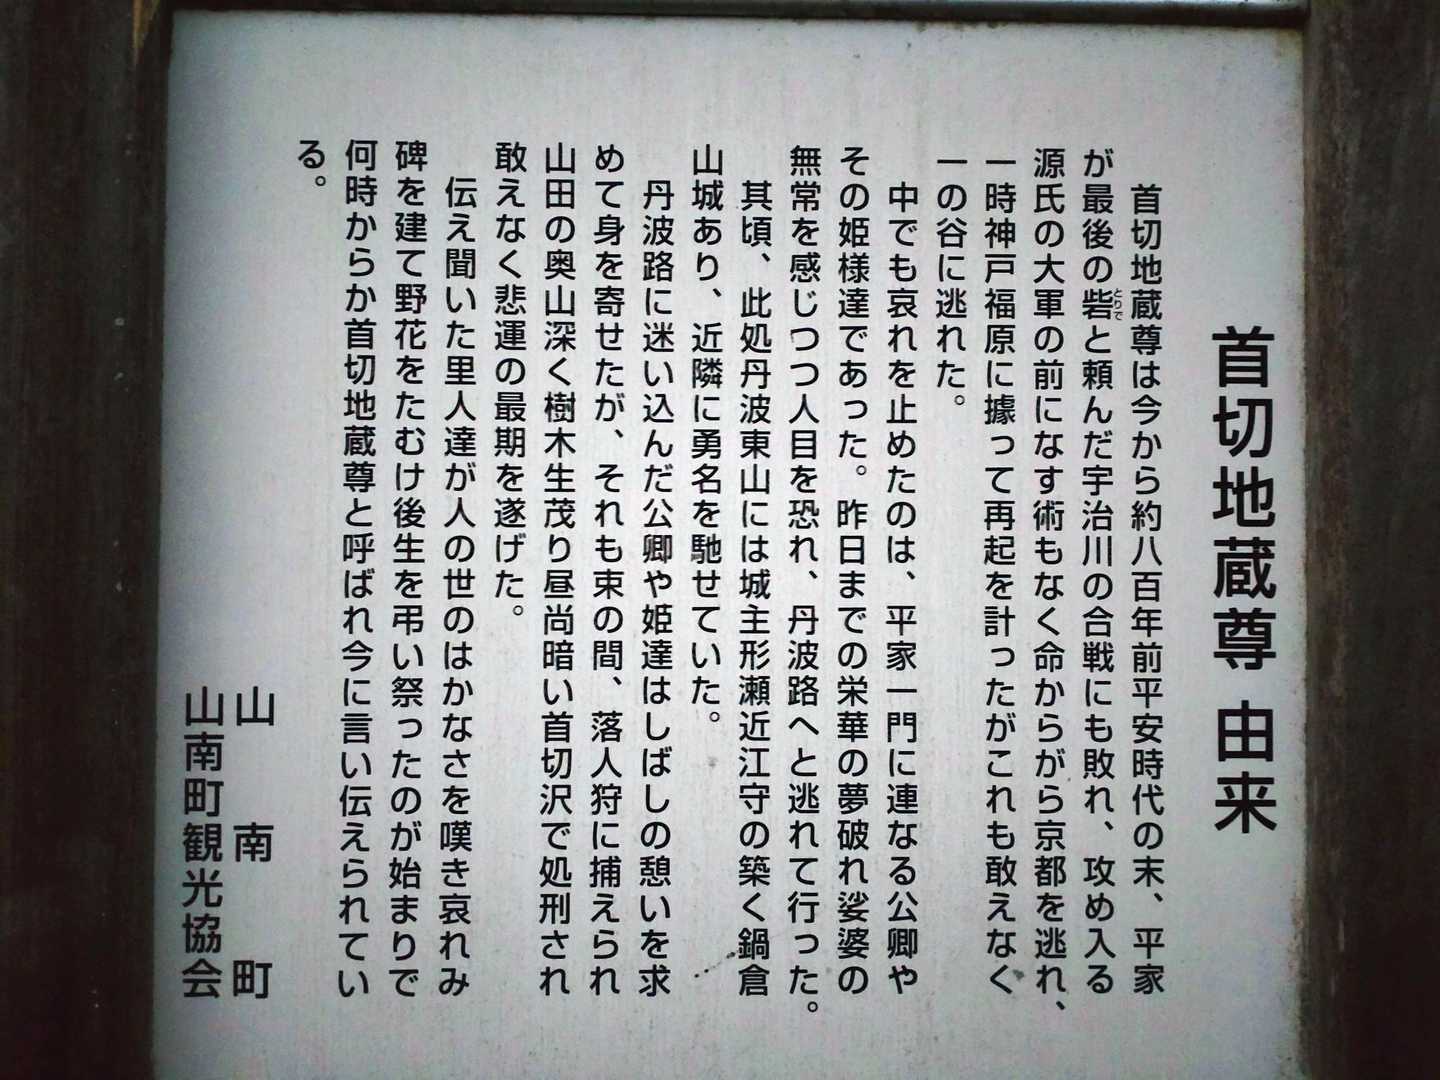 首切地蔵尊 由来
首切地蔵尊は今から約八百年前平安時代の末、平家
が最後の砦と頼んだ宇治川の合戦にも敗れ、攻め入る
とりで
源氏の大軍の前になす術もなく命からがら京都を逃れ、
一時神戸福原に據って再起を計ったがこれも敢えなく
一の谷に逃れた。
中でも哀れを止めたのは、平家一門に連なる公卿や
その姫様達であった。昨日までの栄華の夢破れ娑婆の
無常を感じつつ人目を恐れ、丹波路へと逃れて行った。
其頃、此処丹波東山には城主形瀬近江守の築く鍋倉
山城あり、近隣に勇名を馳せていた。
丹波路に迷い込んだ公卿や姫達はしばしの憩いを求
めて身を寄せたが、それも束の間、落人狩に捕えられ
山田の奥山深く樹木生茂り昼尚暗い首切沢で処刑され
敢えなく悲運の最期を遂げた。
伝え聞いた里人達が人の世のはかなさを嘆き哀れみ
碑を建て野花をたむけ後生を弔い祭ったのが始まりで
何時からか首切地蔵尊と呼ばれ今に言い伝えられてい
る。
山南町
山南町観光協会